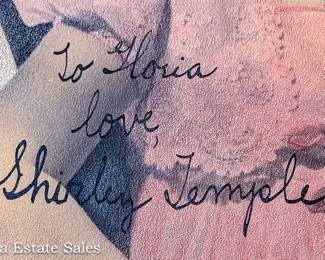 To Gloria
love,
Shirley Temple
a Estate Sales